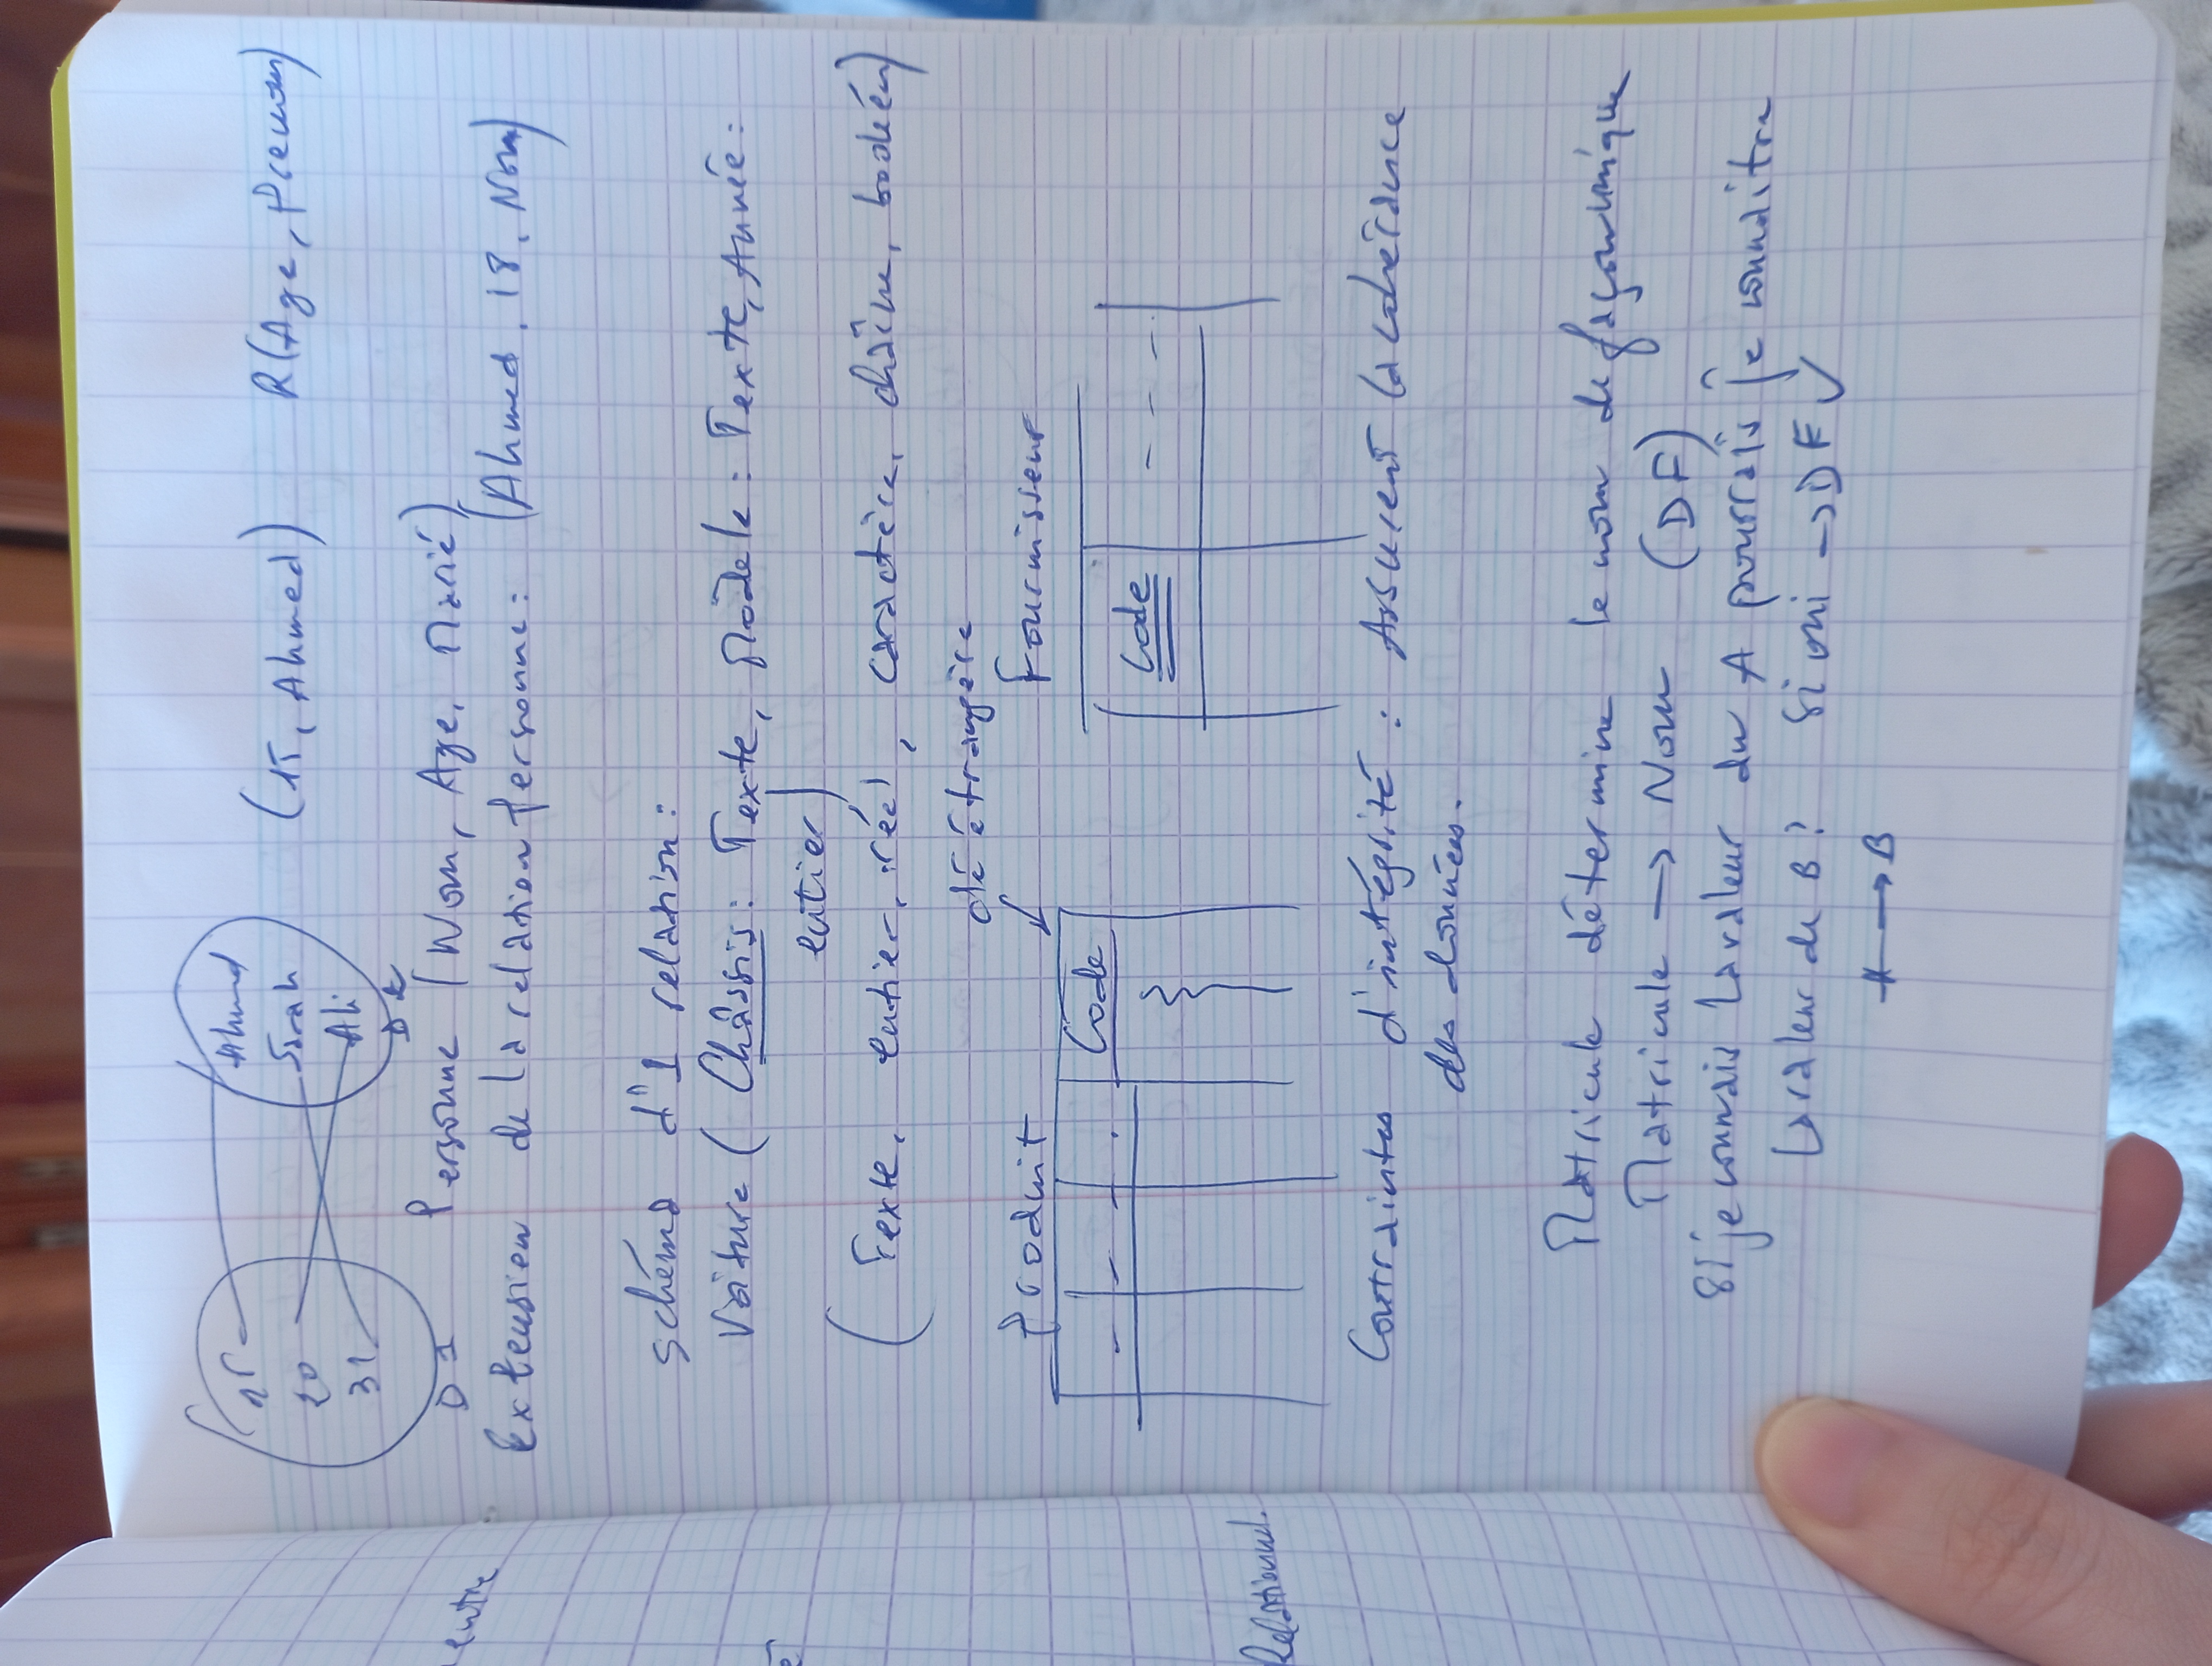 15 Ahmed
20 Sarah (15, Ahmed) R(Age, Prenom)
31 Ali
D1 D2
Personne (Nom, Age, Marié)
Extension de la relation Personne: (Ahmed, 18, Non)
schéma d'1 relation:
Voiture (Châssis: Texte, Modèle: Texte, Année:
entier)
(Texte, entier, réel, caractère, chaîne, booléen)
clé étrangère
Produit Fournisseur
Code
Code
Contraintes d'intégrité: Assurent la cohérance
des données.
Matricule détermine le nom de façon unique
Matricule → Nom (DF)
Si je connais la valeur du A pourrais je connaître
la valeur de B? Si oui → DF ✓
A → B
entre
Relationnel.